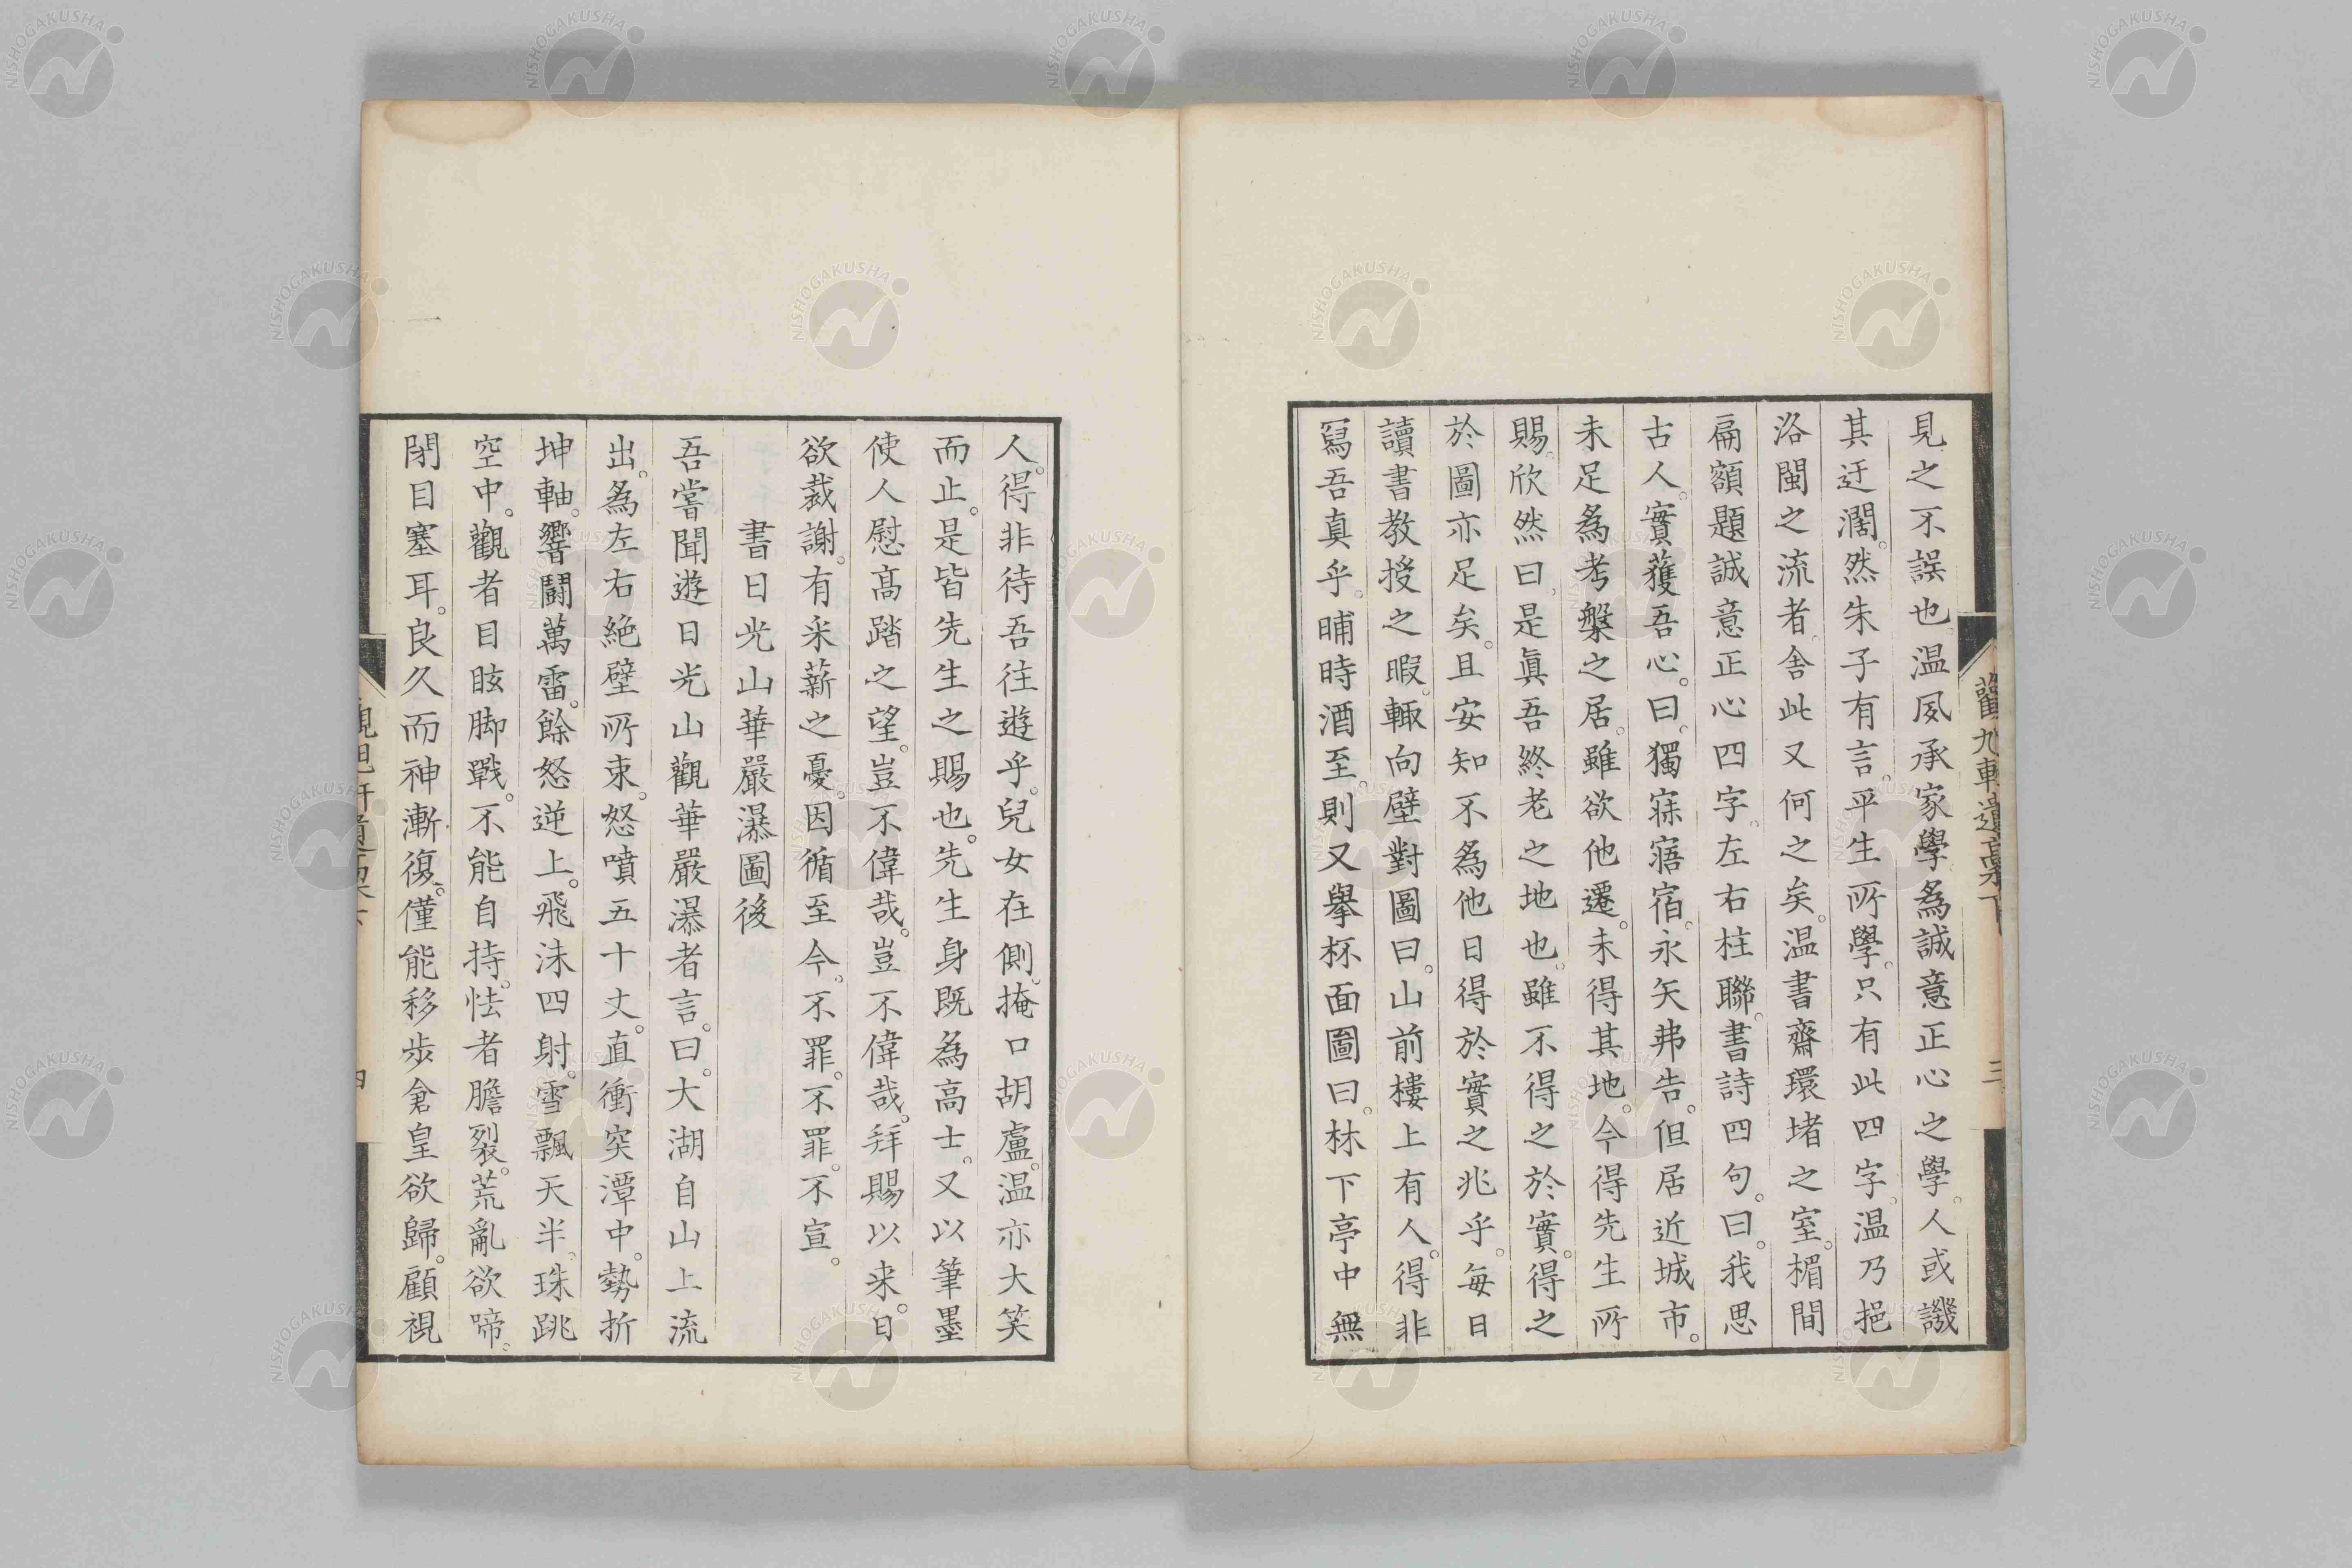 見之不誤也温夙承家學爲誠意正心之學。人或譏
其迂濶。然朱子有言。平生所學。只有此四字。温乃挹
洛閩之流者。舍此又何之矣。温書齋環堵之室。楣間
扁額題誠意正心四字。左右柱聯。書詩四句。曰。我思
古人。實獲吾心。曰。獨寐寤宿。永矢弗告。但居近城市。
未足爲考槃之居。雖欲他遷。未得其地。今得先生所
賜。欣然曰。是眞吾終老之地也。雖不得之於實。得之
於圖亦足矣。且安知不爲他日得於實之兆乎。每日
讀書教授之暇。輙向壁對圖曰。山前樓上有人。得非
冩吾真乎。晡時酒至。則又擧杯面圖曰。林下亭中無
觀旭軒遺稾下
三
人。得非待吾往遊乎。兒女在側。掩口胡盧。温亦大笑
而止。是皆先生之賜也。先生身既爲高士。又以筆墨
使人慰髙踏之望。豈不偉哉。豈不偉哉。拜賜以来。日
欲裁謝。有采薪之憂。因循至今。不罪。不罪。不宣。
書日光山華嚴瀑圖後
吾嘗聞遊日光山觀華嚴瀑者言。曰。大湖自山上流
出。爲左右絶壁所束。怒噴五十丈。直衝突潭中。勢折
坤軸。響鬪萬雷。餘怒逆上。飛沫四射。雪飄天半。珠跳
空中。觀者目眩脚戰。不能自持。怯者膽裂。荒亂欲啼。
閉目塞耳。良久而神漸復。僅能移步倉皇欲歸。顧視
NISHOGAKUSHA